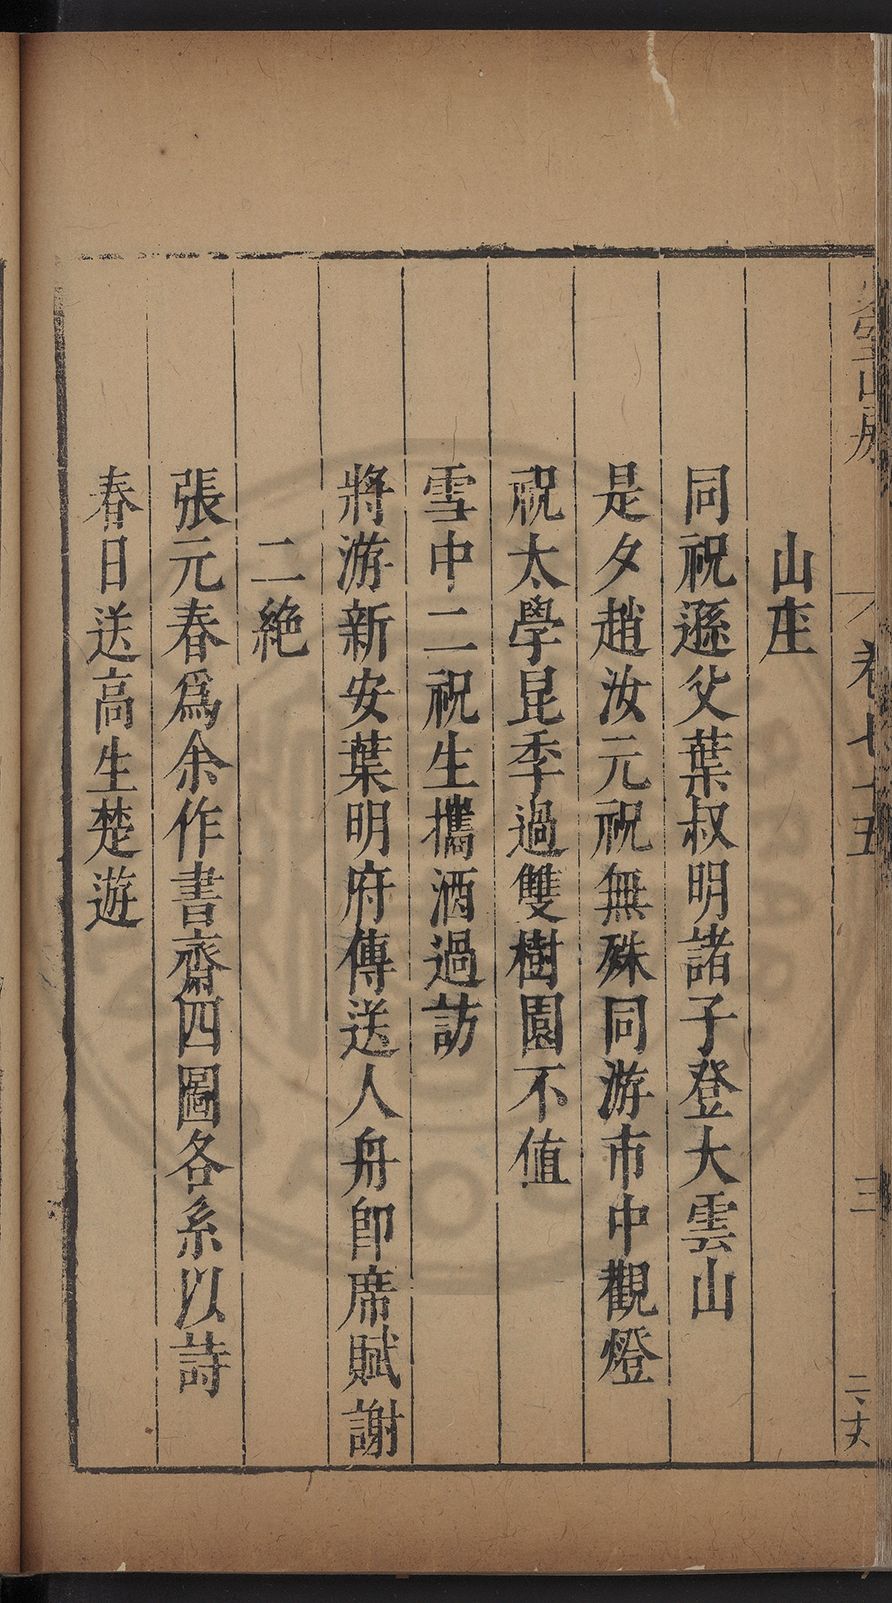 山座
同祝遜父葉叔明諸子登大雲山
是夕趙汝元祝無殊同游市中觀燈
祝太學昆季過雙樹園不值
雪中二祝生攜酒過訪
將游新安葉明府傳送人舟卽席賦謝
二絶
張元春爲余作書齋四圖各系以詩
春日送高生楚遊
山房
卷七十五
三